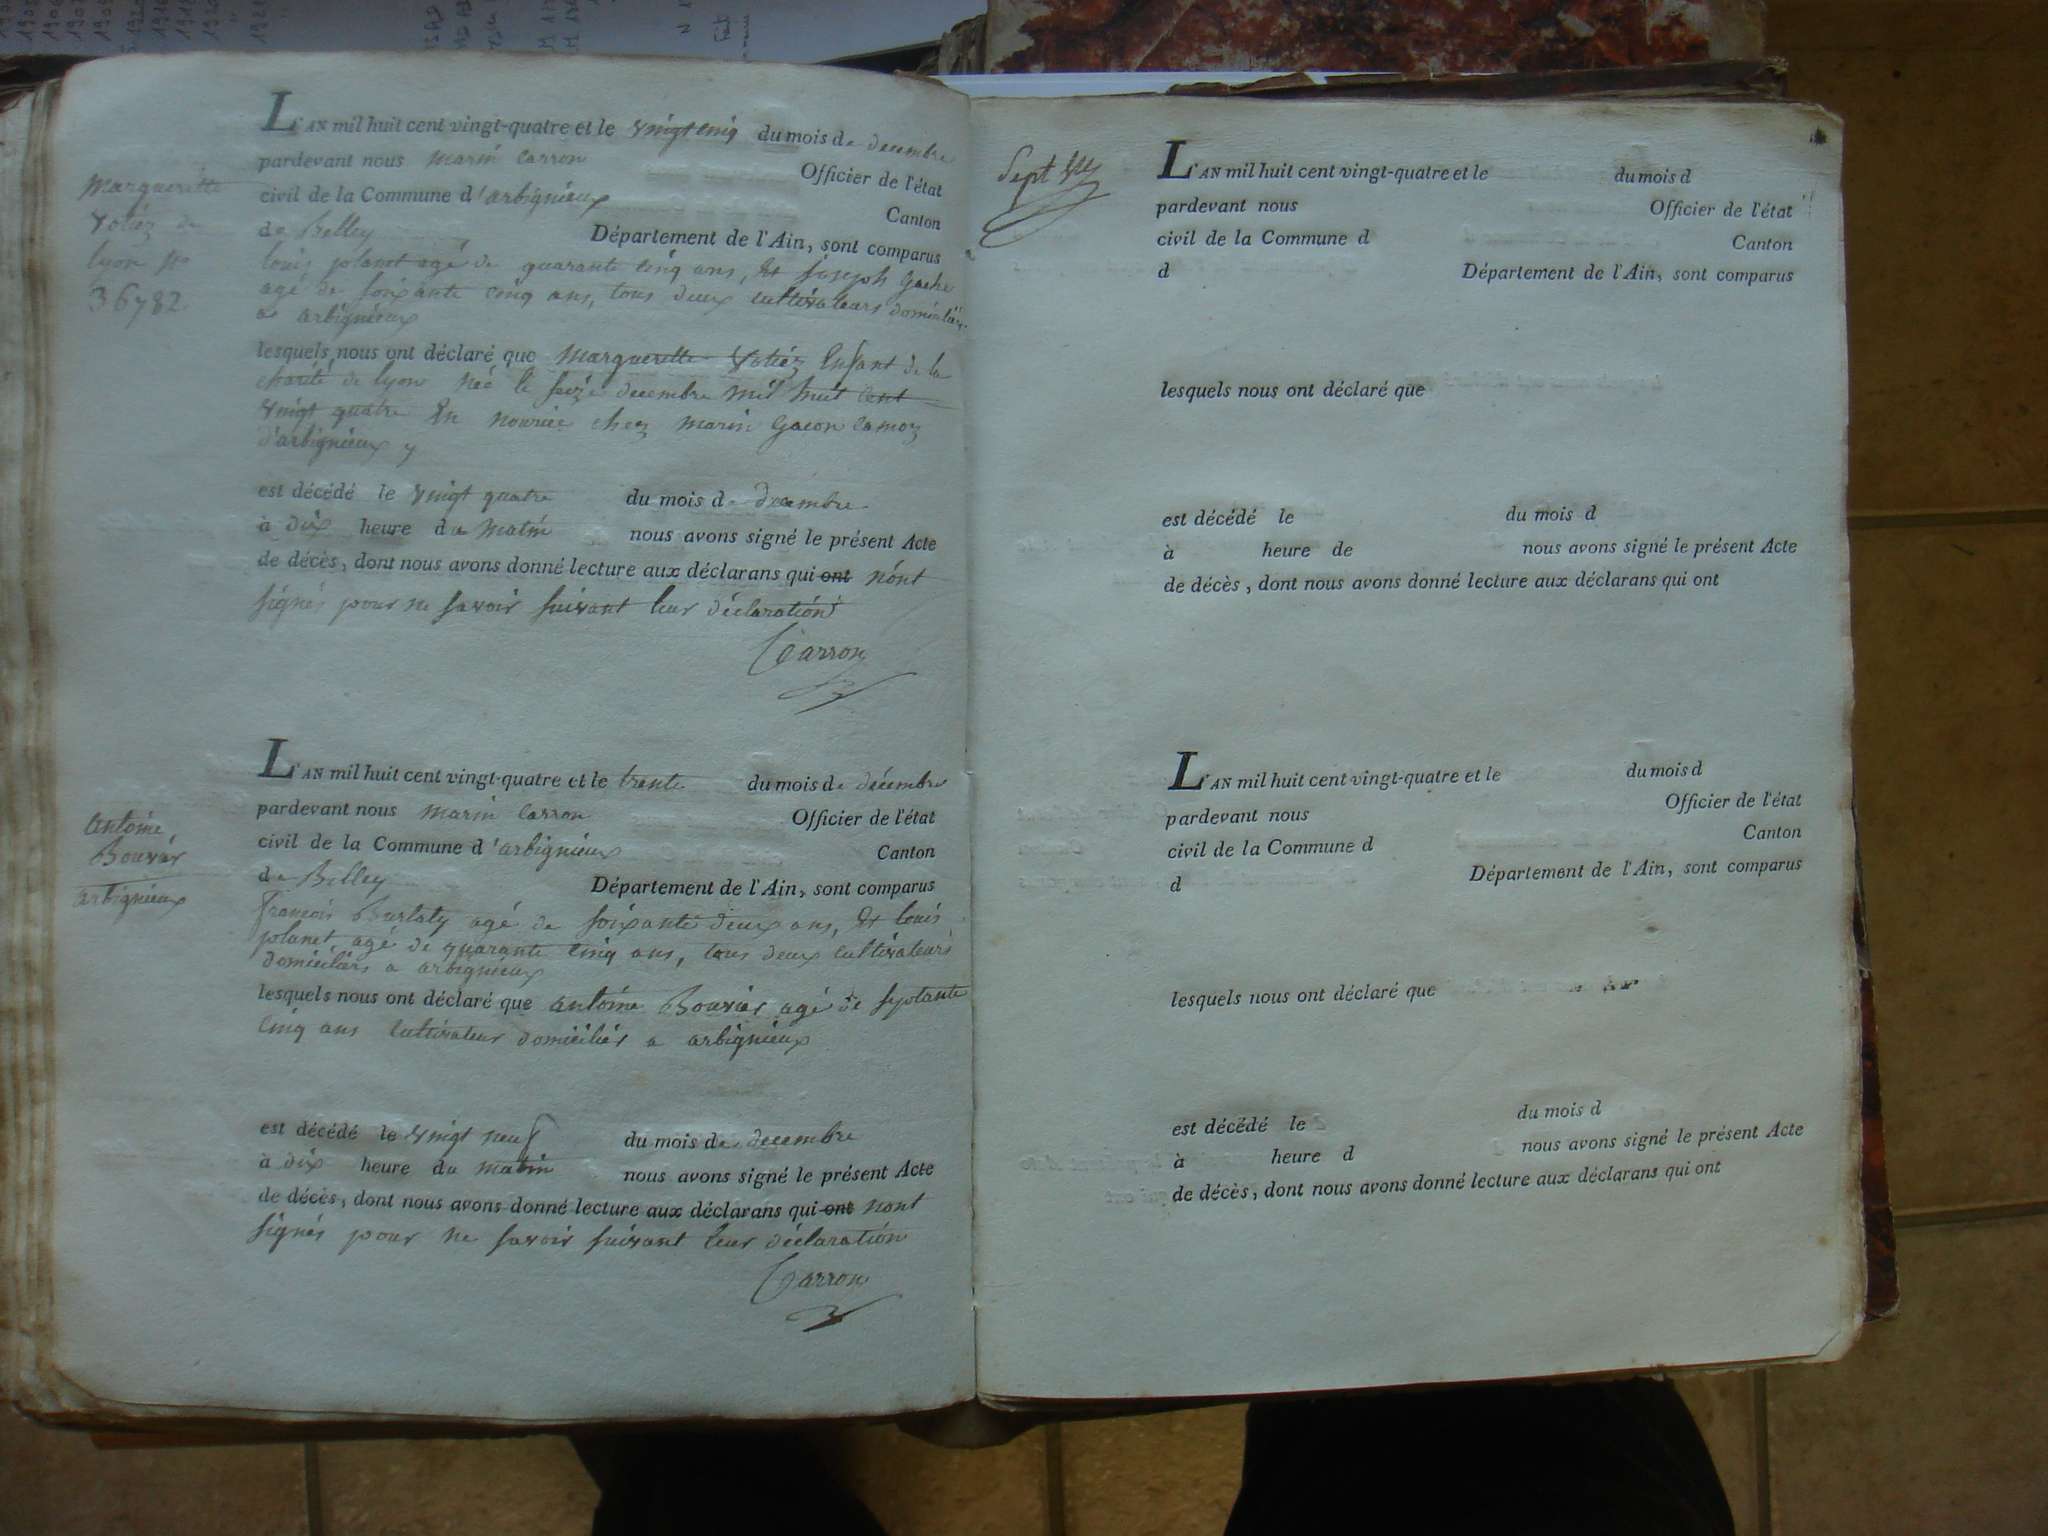 Marguerette
de
lyon no
36782
L'AN mil huit cent vingt-quatre et le vingt cinq du mois de decembre
pardevant nous marin Carron Officier de l'état
civil de la Commune d'arbignieux Canton
de Belley Département de l'Ain, sont comparus
louis planet agé de quarante cinq ans, Et joseph
agé de soixante cinq ans, tous deux cultivateurs domiciliés
a arbignieux
lesquels nous ont déclaré que Marguerette Enfant de la
charité de lyon née le seize decembre mil huit cent
vingt quatre En nourice chez marin Gacon
d'arbignieux
est décédé le vingt quatre du mois de decembre
à dix heure du matin nous avons signé le présent Acte
de décès, dont nous avons donné lecture aux déclarans qui ont n'ont
signés pour ne savoir suivant leur déclaration
Carron
antoine
Bouvier
arbignieux
L'AN mil huit cent vingt-quatre et le trente du mois de décembre
pardevant nous marin Carron Officier de l'état
civil de la Commune d'arbignieux Canton
de Belley Département de l'Ain, sont comparus
francois Burlaty agé de soixante deux ans, Et louis
planet agé de quarante cinq ans, tous deux cultivateurs
domiciliers a arbignieux
lesquels nous ont déclaré que antoine Bouvier agé de septante
cinq ans cultivateur domicilier a arbignieux
est décédé le vingt neuf du mois de decembre
à dix heure du matin nous avons signé le présent Acte
de décès, dont nous avons donné lecture aux déclarans qui ont nont
signés pour ne savoir suivant leur déclaration
Carron
Sept
L'AN mil huit cent vingt-quatre et le du mois d
pardevant nous Officier de l'état
civil de la Commune d Canton
d Département de l'Ain, sont comparus
lesquels nous ont déclaré que
est décédé le du mois d
à heure de nous avons signé le présent Acte
de décès, dont nous avons donné lecture aux déclarans qui ont
L'AN mil huit cent vingt-quatre et le du mois d
pardevant nous Officier de l'état
civil de la Commune d Canton
d Département de l'Ain, sont comparus
lesquels nous ont déclaré que
est décédé le du mois d
à heure d nous avons signé le présent Acte
de décès, dont nous avons donné lecture aux déclarans qui ont